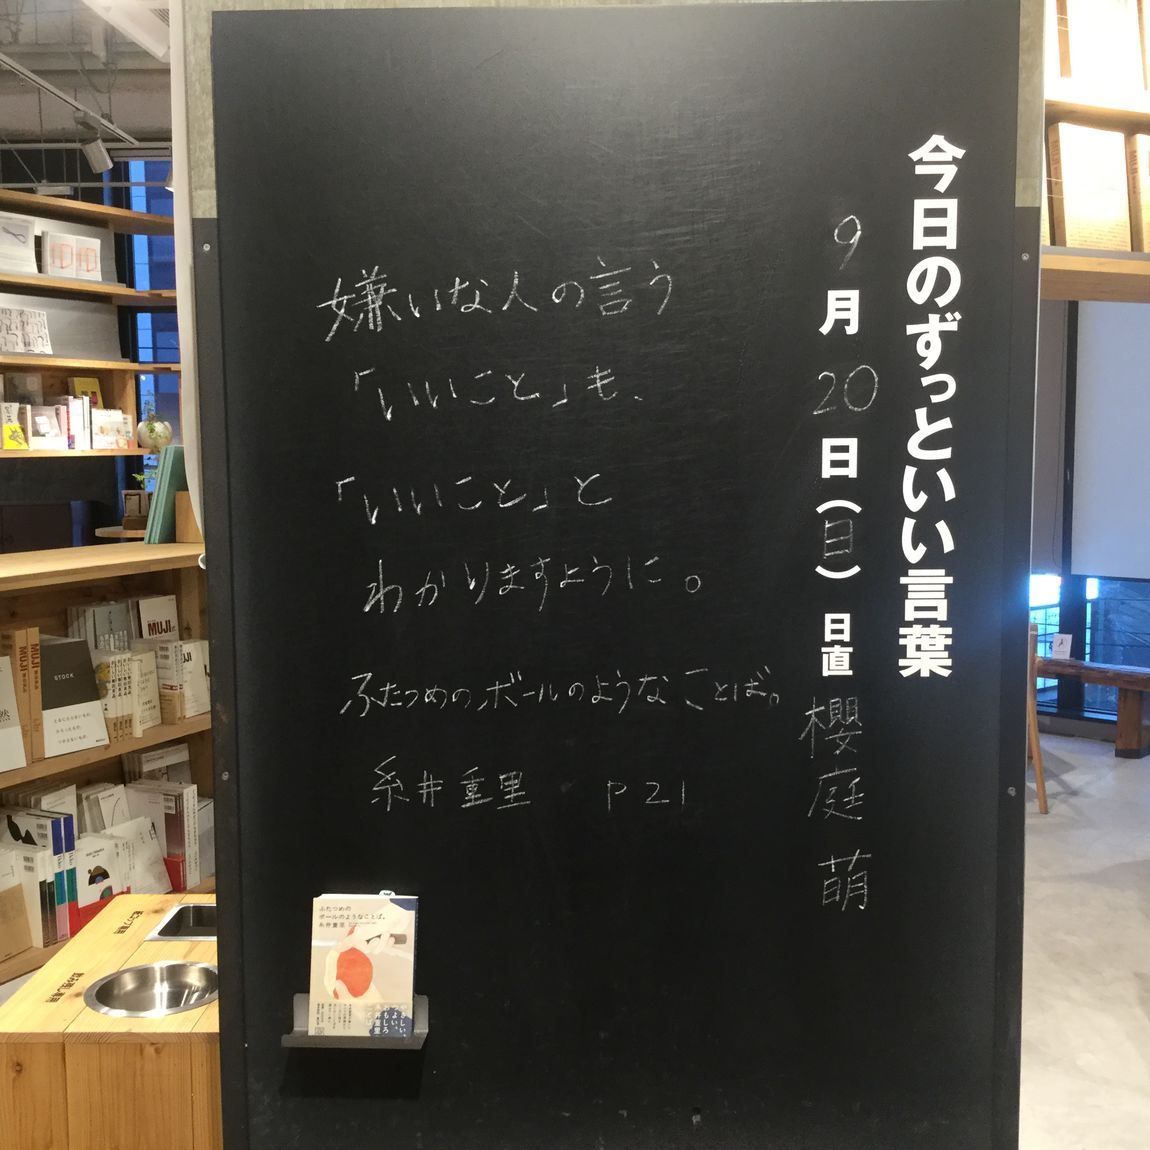 今日のずっといい言葉
9月20日(日) 日直 櫻庭 萌
嫌いな人の言う
「いいこと」も、
「いいこと」と
わかりますように。
ふたつめのボールのようなことば。
糸井重里 P21
ふたつめの
ボールのようなことば。
糸井重里
やさしい、
つよい、
おもしろい。
MUJI
MUJI
MUJI
STOCK